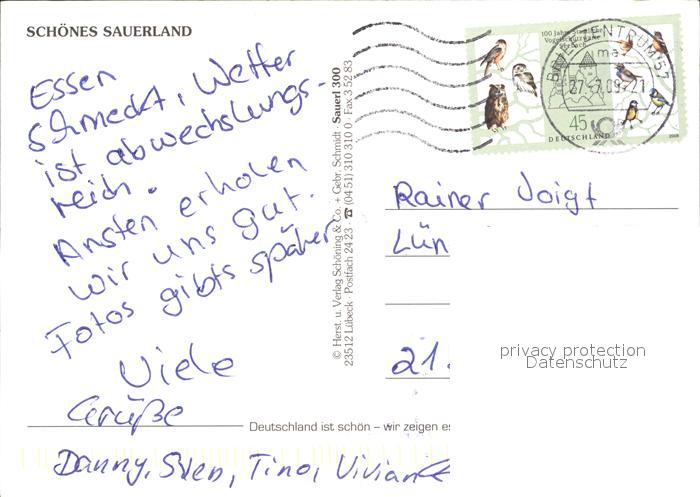 SCHÖNES SAUERLAND
Essen
schmeckt, Wetter
ist abwechslungs-
reich.
Ansten erholen
wir uns gut.
Fotos gibts später
Viele
Grüße
Danny, Sven, Tino, Vivian
Deutschland ist schön – wir zeigen es
© Herst. u. Verlag Schöning & Co. + Gebr. Schmidt Sauerl 300
23512 Lübeck · Postfach 24 23 ☎ (04 51) 310 310 0 · Fax 3 52 83
100 Jahre Staatliche
Vogelschutzwarte
Seebach
45
DEUTSCHLAND
2008
BRIEFZENTRUM 57
ma
27.-7.09.-21
Rainer Voigt
Lün
21.
privacy protection
Datenschutz